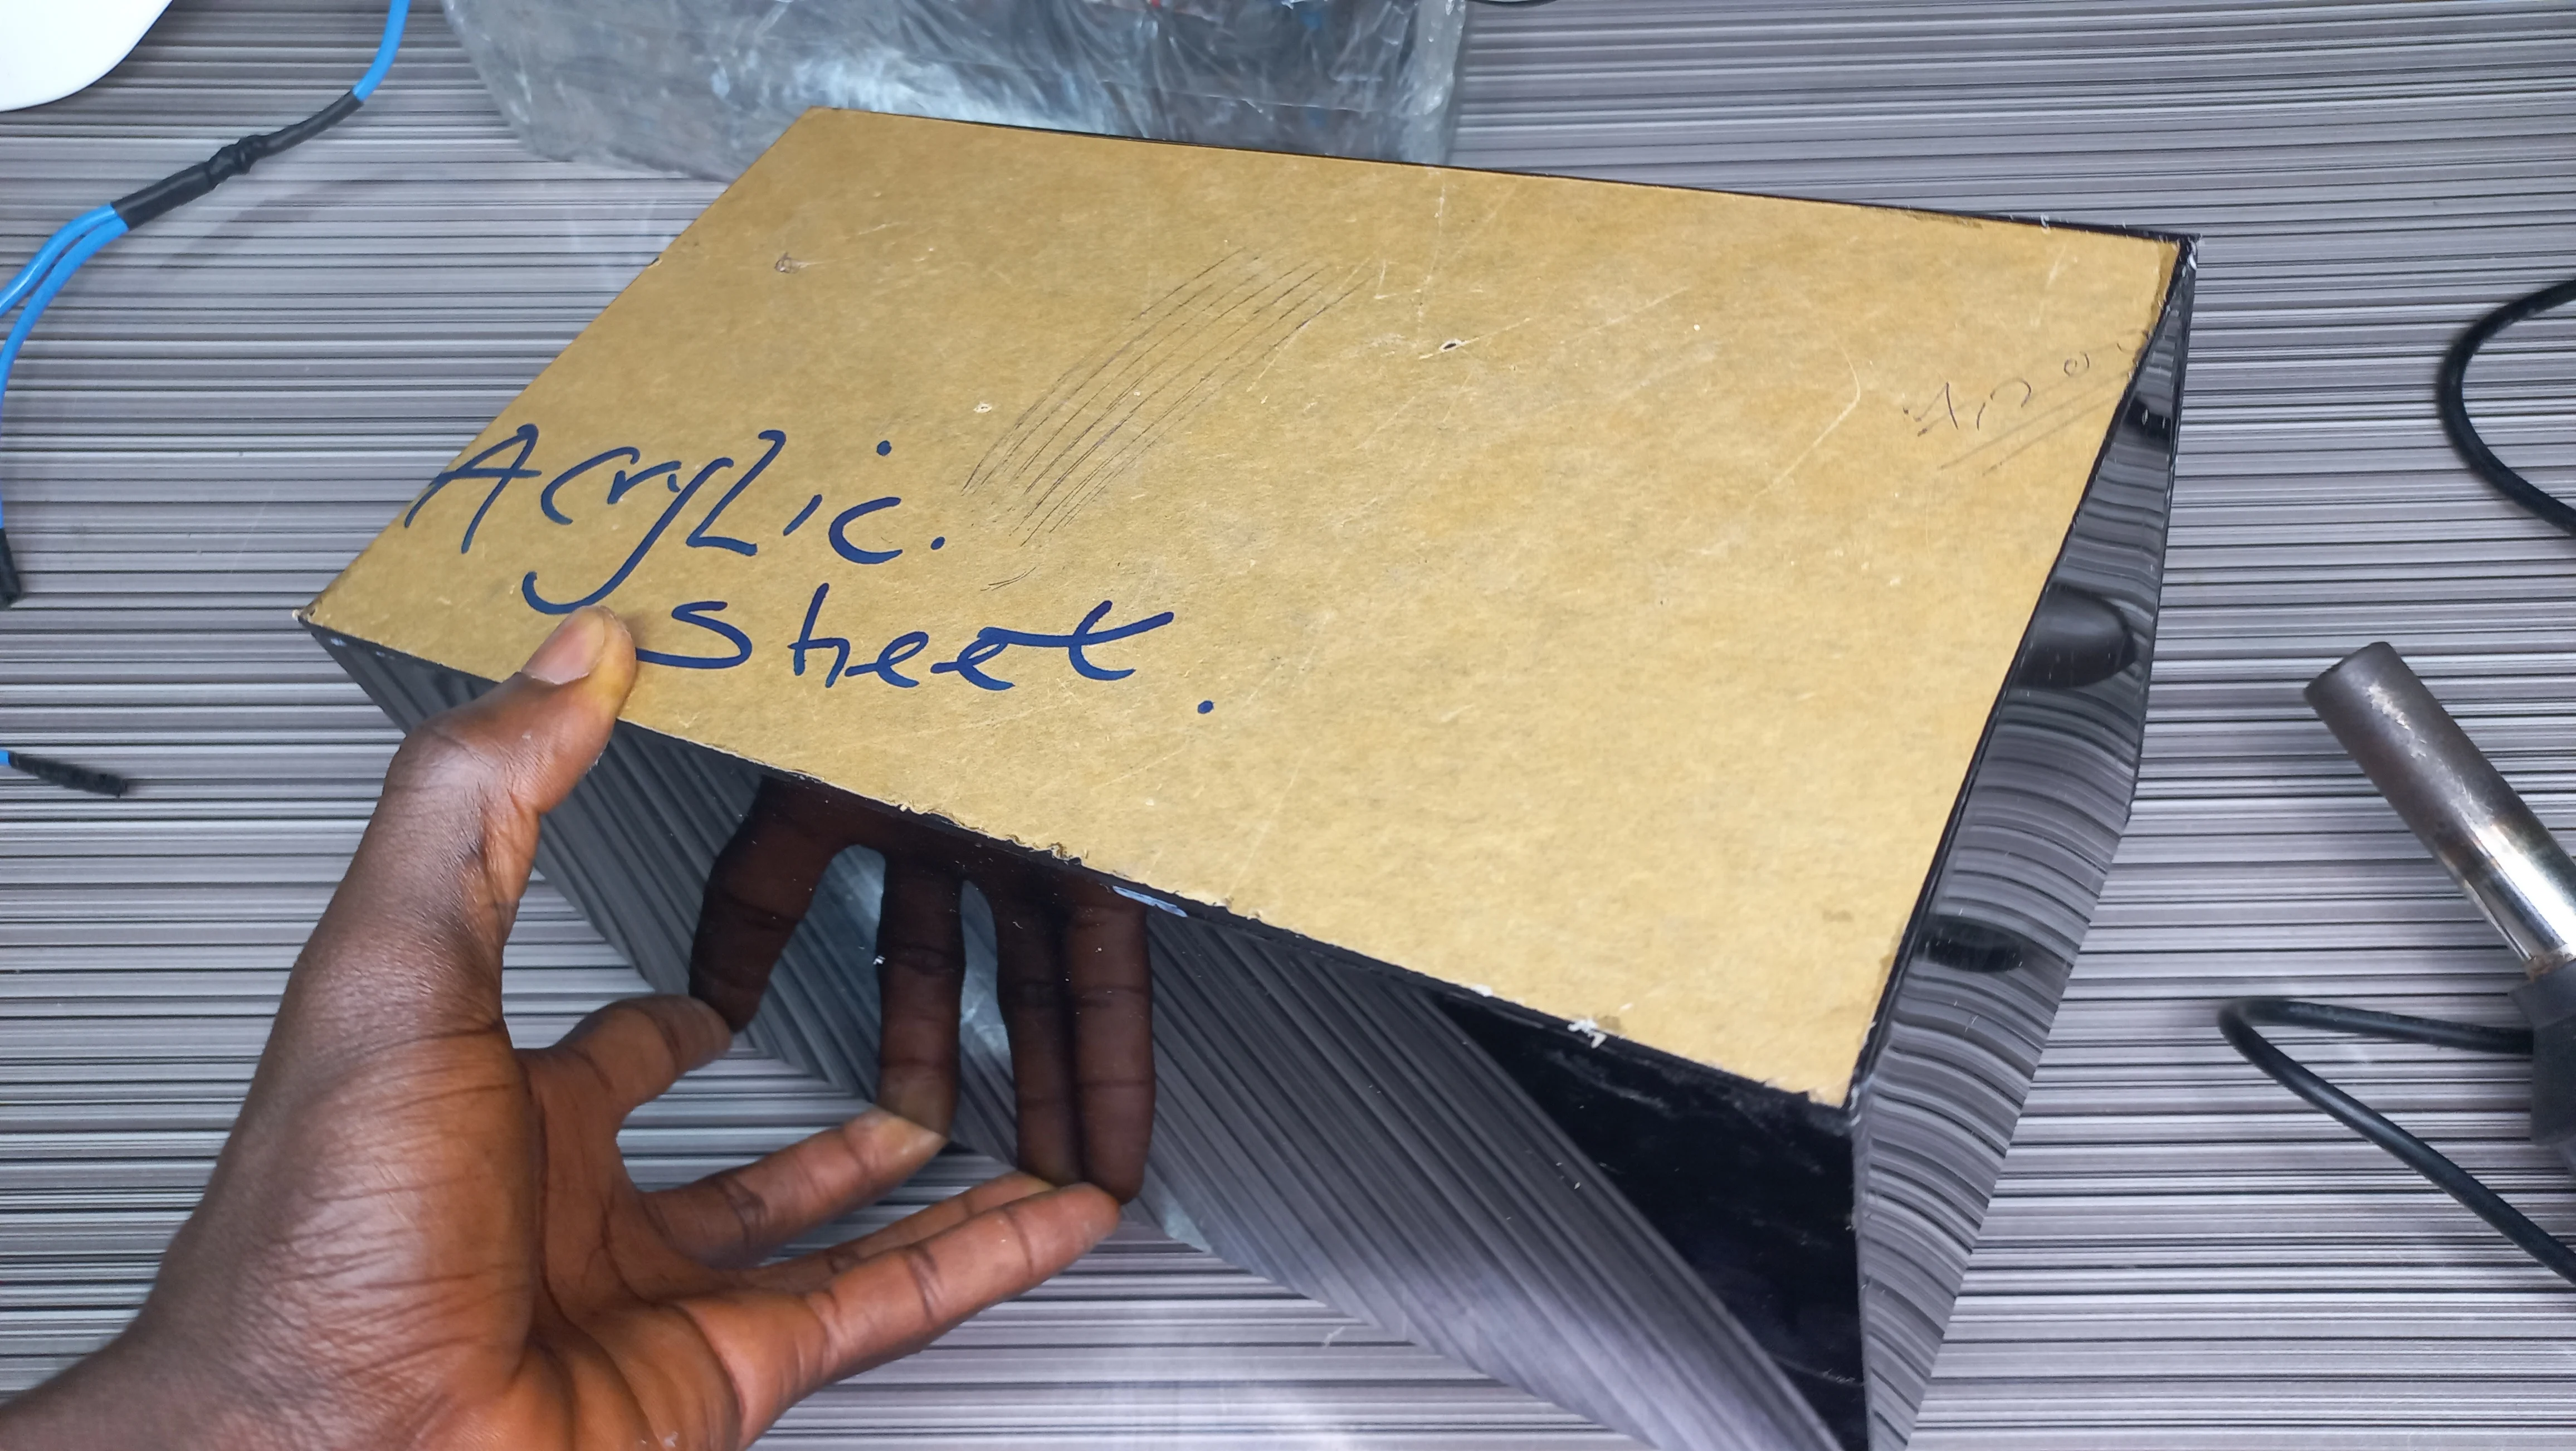 Acrylic.
Sheet.